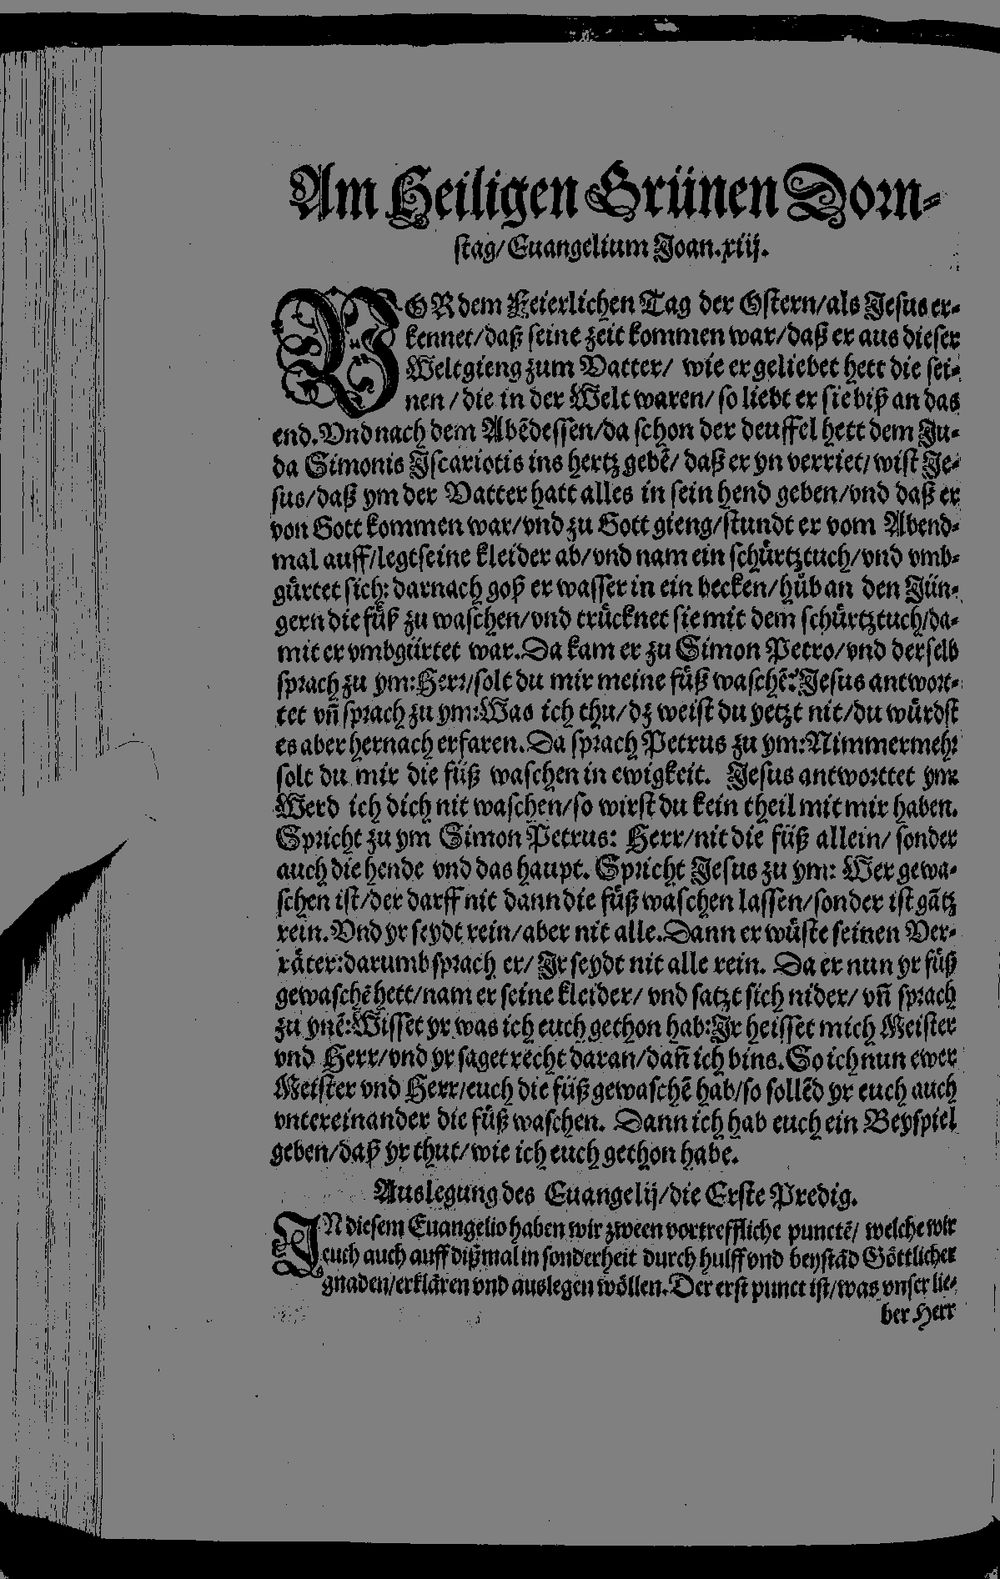 Am Heiligen Grünen Dorn-
stag/ Euangelium Joan. xiij.
VOR dem Feierlichen Tag der Ostern/ als Jesus er-
kennet/ daß seine zeit kommen war/ daß er aus dieser
Welt gieng zum Vatter/ wie er geliebet hett die sei-
nen/ die in der Welt waren/ so liebt er sie biß an das
end. Vnd nach dem Abēdessen/ da schon der deuffel hett dem Ju-
da Simonis Iscariotis ins hertz gebē/ daß er yn verriet/ wist Je-
sus/ daß ym der Vatter hatt alles in sein hend geben/ vnd daß er
von Gott kommen war/ vnd zu Gott gieng/ stundt er vom Abend-
mal auff/ legt seine kleider ab/ vnd nam ein schürtztuch/ vnd vmb-
gürtet sich: darnach goß er wasser in ein becken/ hůb an den Jün-
gern die füß zu waschen/ vnd trücknet sie mit dem schürtztuch/ da-
mit er vmbgürtet war. Da kam er zu Simon Petro/ vnd derselb
sprach zu ym: Herr/ solt du mir meine füß waschē? Jesus antwort-
tet vn̄ sprach zu ym: Was ich thu/ dz weist du yetzt nit/ du würdst
es aber hernach erfaren. Da sprach Petrus zu ym: Nimmermehr
solt du mir die füß waschen in ewigkeit. Jesus antworttet ym:
Werd ich dich nit waschen/ so wirst du kein theil mit mir haben.
Spricht zu ym Simon Petrus: Herr/ nit die füß allein/ sonder
auch die hende vnd das haupt. Spricht Jesus zu ym: Wer gewa-
schen ist/ der darff nit dann die füß waschen lassen/ sonder ist gātz
rein. Vnd yr seydt rein/ aber nit alle. Dann er wüste seinen Ver-
räter: darumb sprach er/ Jr seydt nit alle rein. Da er nun yr füß
gewaschē hett/ nam er seine kleider/ vnd satzt sich nider/ vn̄ sprach
zu ynē: Wisset yr was ich euch gethon hab: Jr heisset mich Meister
vnd Herr/ vnd yr saget recht daran/ dan̄ ich bins. So ich nun ewer
Meister vnd Herr/ euch die füß gewaschē hab/ so sollēd yr euch auch
vntereinander die füß waschen. Dann ich hab euch ein Beyspiel
geben/ daß yr thut/ wie ich euch gethon habe.
Auslegung des Euangelij/ die Erste Predig.
IN diesem Euangelio haben wir zween vortreffliche punctē/ welche wir
euch auch auff dißmal in sonderheit durch hulff vnd beystād Göttlicher
gnaden/ erklären vnd auslegen wöllen. Der erst punct ist/ was vnser lie-
ber Herr